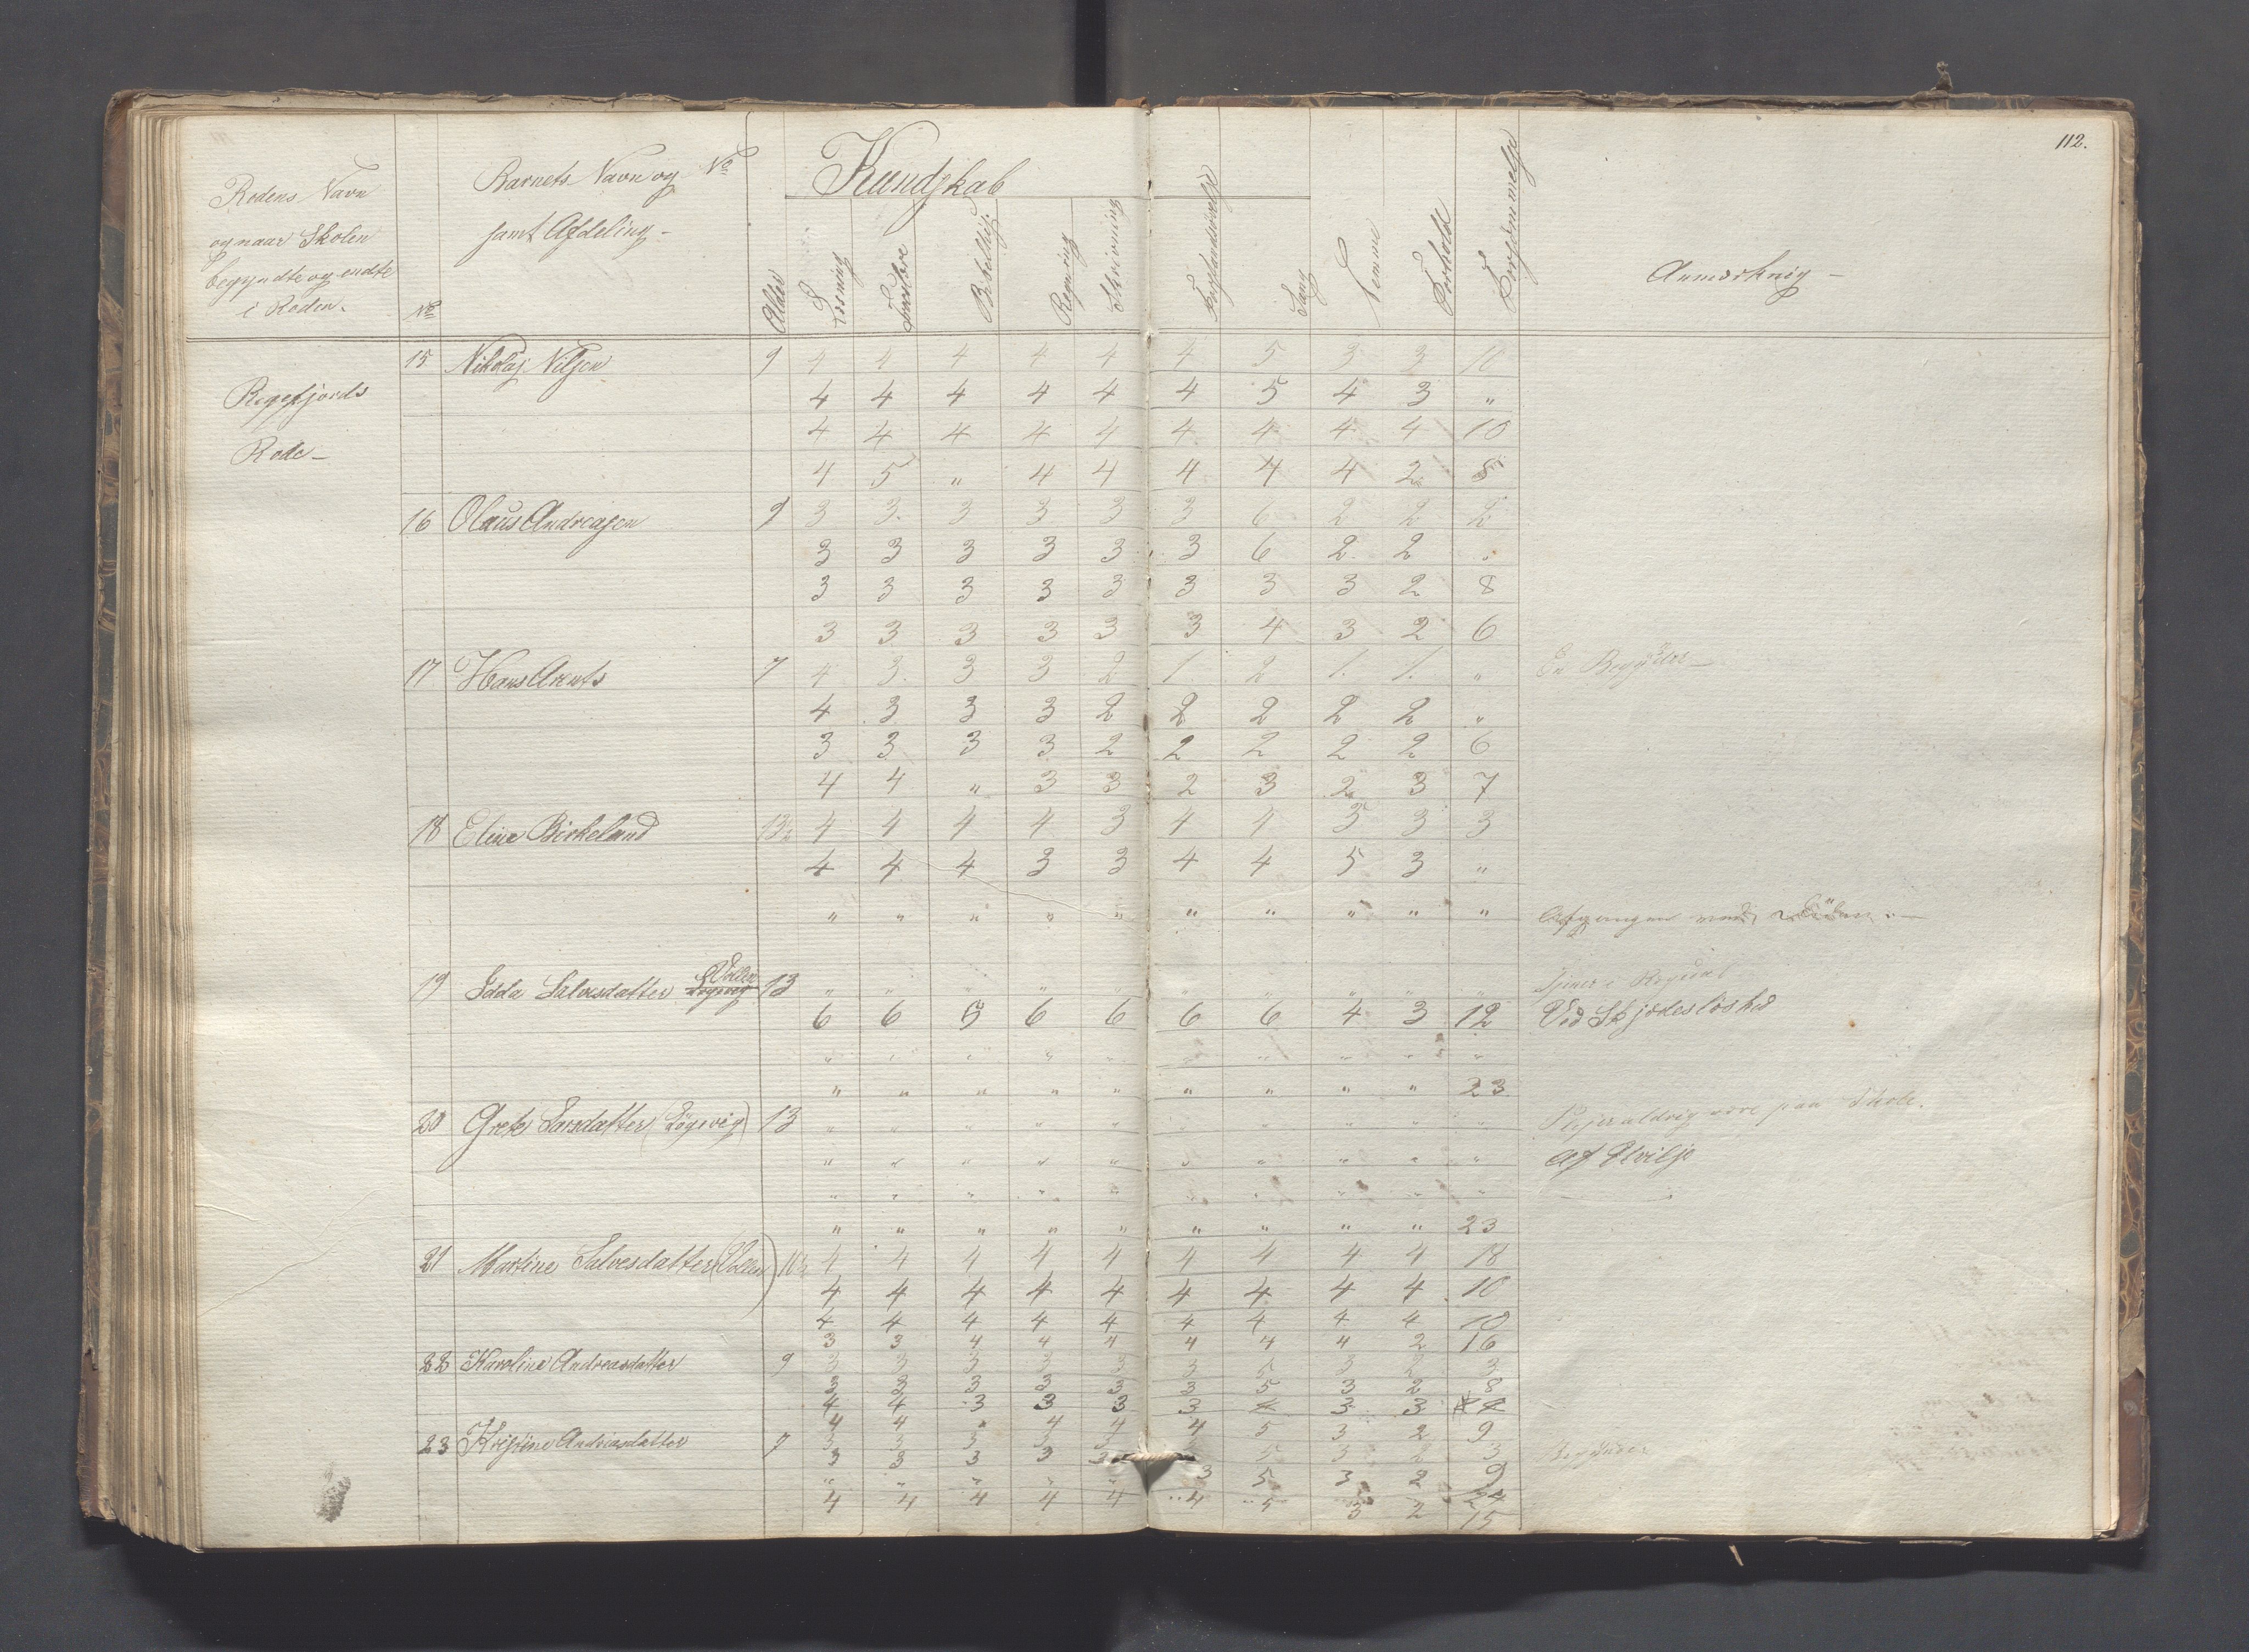 112.
Rodens Navn
og naar Skolen
begyndte og endte
i Roden.
No
Barnets Navn og No
samt Afdeling
Alder
Kundskab
Læsning
Troeslære
Bibelhist.
Regning
Skrivning
Forstandsøvelse
Sang
Nemme
Forhold
Forsømmelse
Anmærkning
Regefjords
Rode
15 Nikolaj Nilsen 9 4 4 4 4 4 4 5 3 3 10
4 4 4 4 4 4 5 4 3 "
4 4 4 4 4 4 4 4 4 10
4 5 " 4 4 4 4 4 2 8
16 Olaus Andreasen 9 3 3 3 3 3 3 6 2 2 2
3 3 3 3 3 3 6 2 2 "
3 3 3 3 3 3 3 3 2 8
3 3 3 3 3 3 4 3 2 6
17 Hans Arents 7 4 3 3 3 2 1 2 1 1 " En Begynder
4 3 3 3 2 2 2 2 2 "
3 3 3 3 2 2 2 2 2 6
4 4 " 3 3 2 3 2 3 7
18 Eline Birkeland 13½ 4 4 4 4 3 4 4 3 3 3
4 4 4 3 3 4 4 5 3 "
" " " " " " " " " " Afgangen ved Döden
19 Edda Salvesdatter Løgsvig Vollen 13 " " " " " " " " Tjener i Regdal
6 6 5 6 6 6 6 4 3 12 Ved Skjødesløshed
" " " " " " " " " "
" " " " " " " " " 23
20 Grete Larsdatter (Løgsvig) 13 " " " " " " " " " " Plejer aldrig være paa Skole.
" " " " " " " " " " Af Uvilje
" " " " " " " " " "
" " " " " " " " " 23
21 Martine Salvesdatter (Vollen) 10½ 4 4 4 4 4 4 4 4 4 18
4 4 4 4 4 4 4 4 4 10
4 4 4 4 4 4 4 4 4 10
3 3 4 4 4 4 4 4 2 16
22 Karoline Andreasdatter 9 3 3 3 3 3 3 5 3 2 3
3 3 3 3 3 3 5 3 2 8
4 4 3 3 3 3 4 3 3 4
4 4 " 4 4 4 5 3 2 9
23 Kristine Andreasdatter 7 3 3 3 3 3 5 3 2 3 Begynder
3 3 3 3 3 3 5 3 2 9
" " " " " 24
4 4 4 4 4 4 5 3 2 15